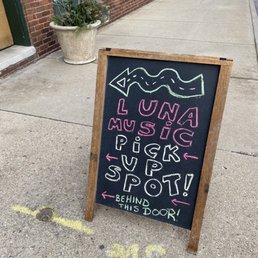 LUNA
MUSIC
PICK
UP
SPOT!
BEHIND
THIS DOOR!